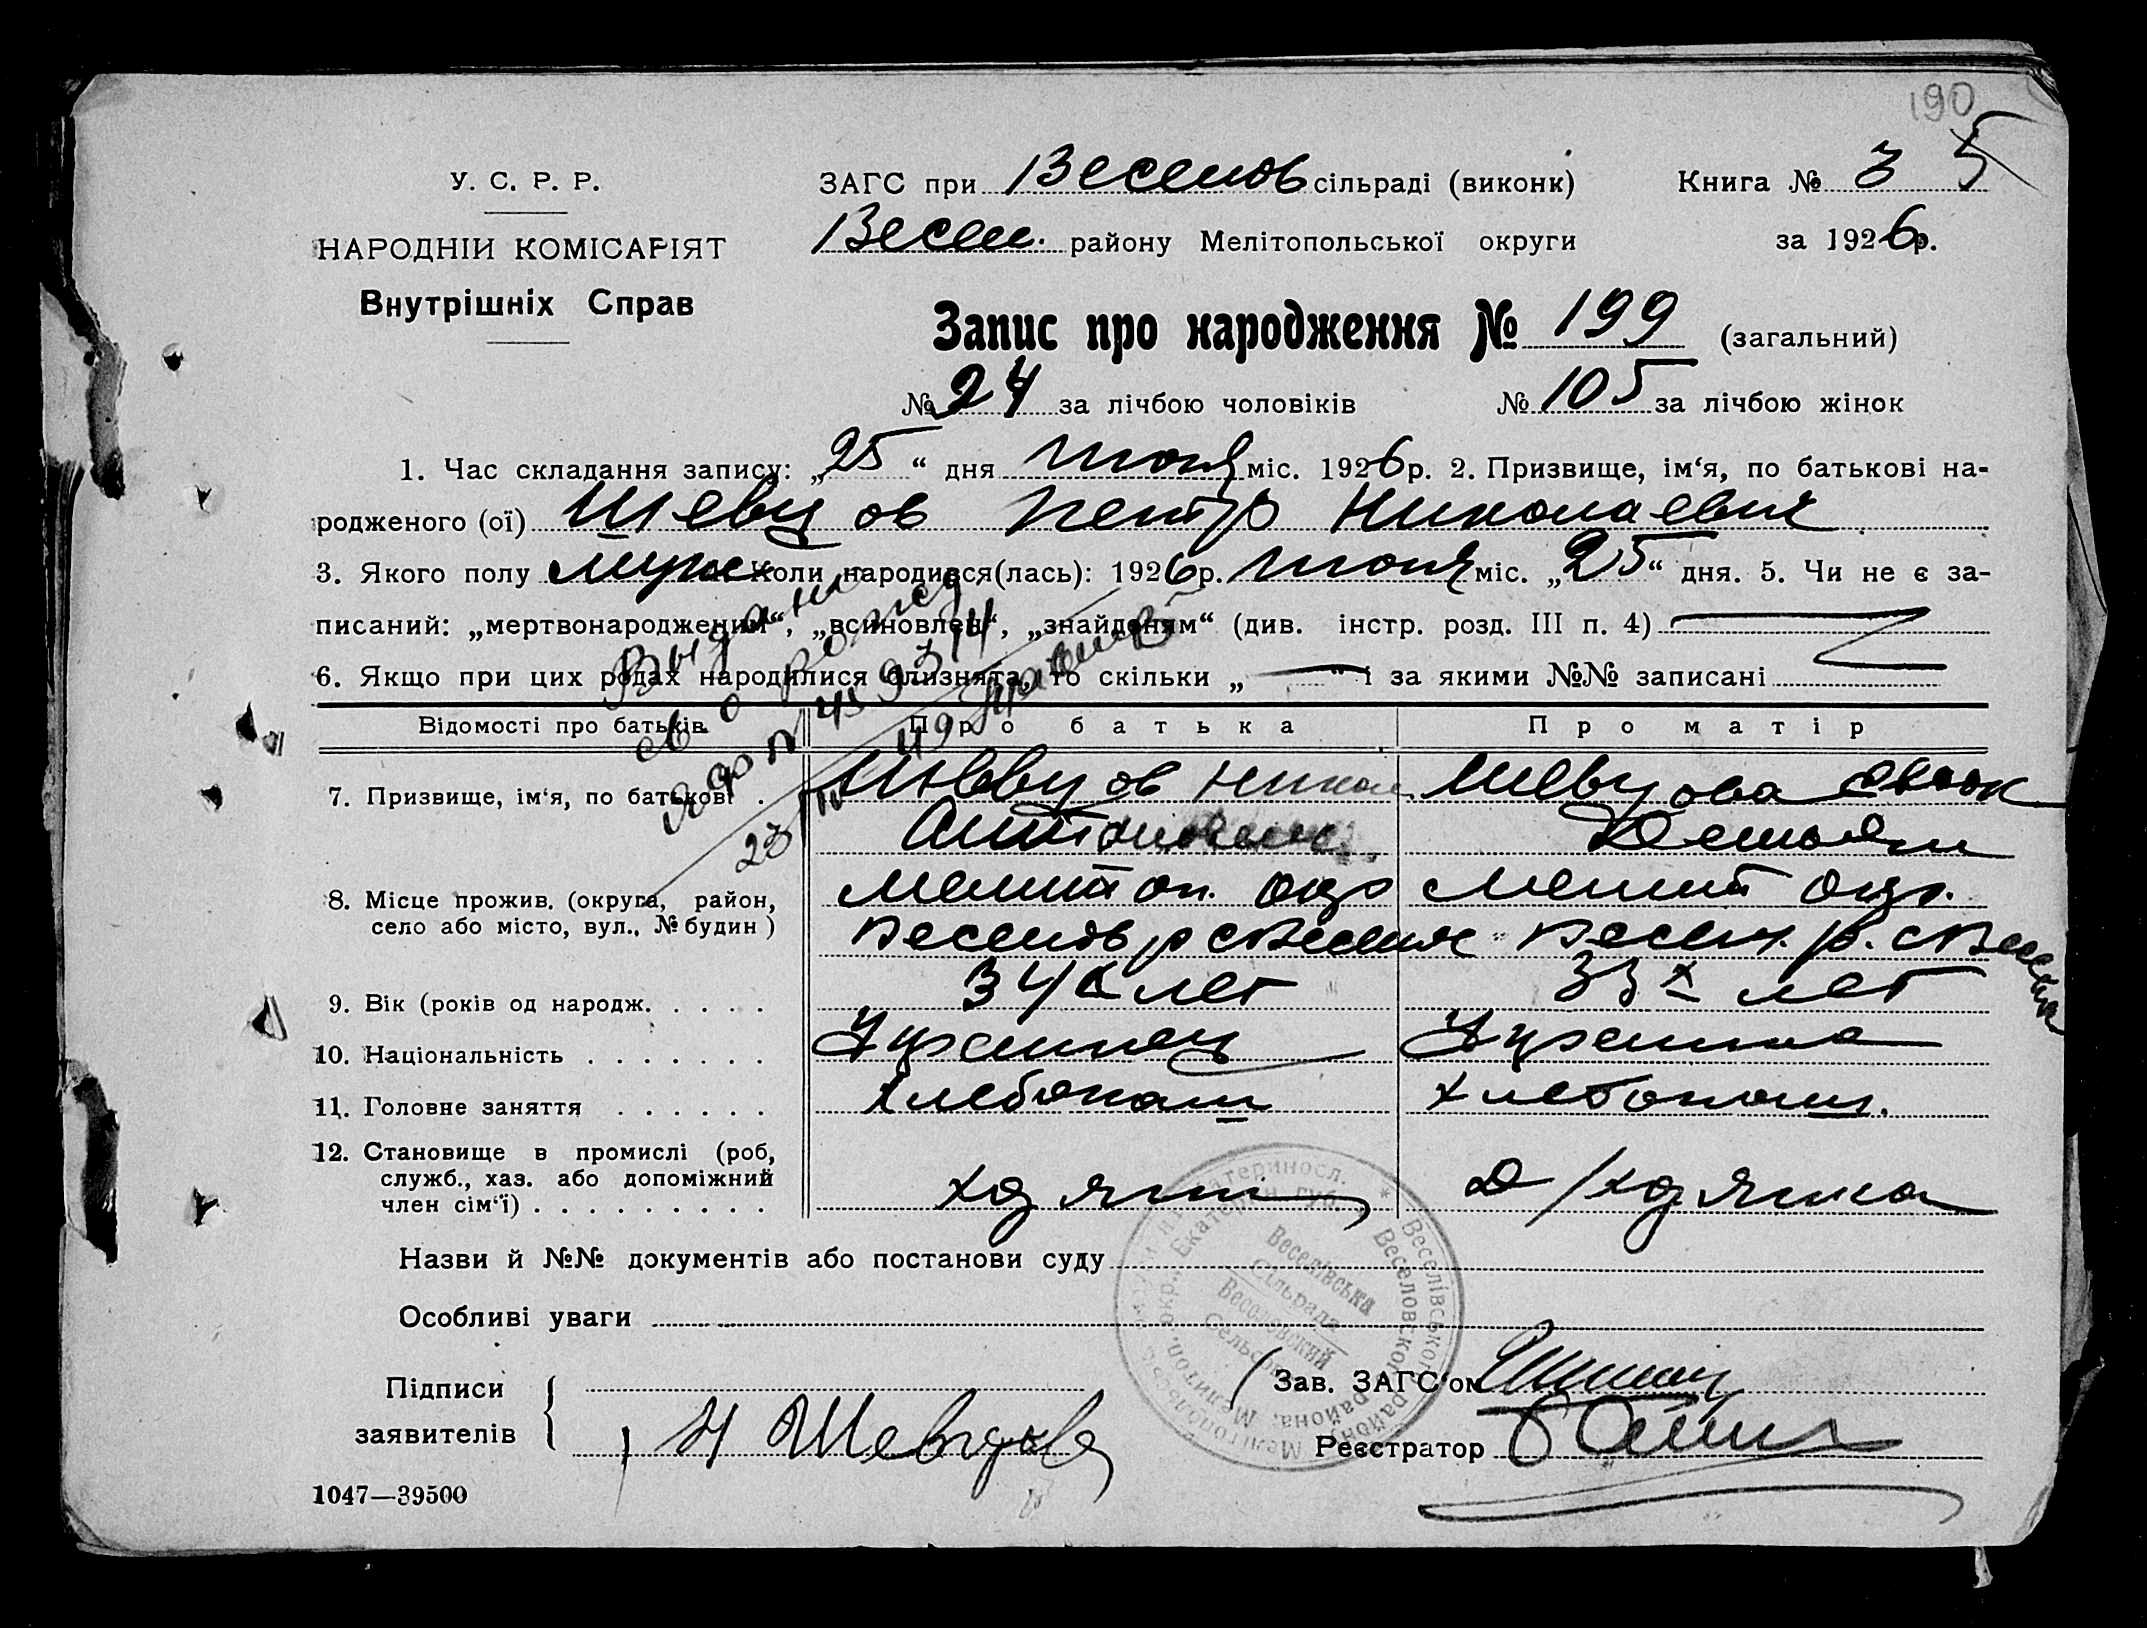 190
У. С. Р. Р.
НАРОДНІЙ КОМІСАРІЯТ
Внутрішніх Справ
ЗАГС при Веселов сільраді (виконк) Книга № 3 5
Весел. району Мелітопольської округи за 1926 р.
Запис про народження № 199 (загальний)
№ 94 за лічбою чоловіків № 105 за лічбою жінок
1. Час складання запису: „25“ дня июня міс. 1926 р. 2. Призвище, ім‘я, по батькові на-
родженого (ої) Шевцов Петр Николаевич
3. Якого полу муж Коли народився(лась): 1926 р. июня міс. „25“ дня. 5. Чи не є за-
писаний: „мертвонароджений“, „всиновлен“, „знайденям“ (див. інстр. розд. III п. 4)
6. Якщо при цих родах народилися близнята, то скільки „ “ і за якими №№ записані
Выдано
св о рожд
Відомості про батьків. Про батька Про матір
7. Призвище, ім‘я, по батькові . Шевцов Никол Шевцова Евдок
Демьян
8. Місце прожив. (округа, район, Мелитоп. окр Мелит окр.
село або місто, вул., № будин) Веселов р с Веселое Весел. р. с Веселое
9. Вік (років од народж. . . . . 34 х лет 33 х лет
10. Національність . . . . . . . Украинец Украинка
11. Головне заняття . . . . . . хлебопаш хлебопаш.
12. Становище в промислі (роб,
служб., хаз. або допоміжний хозяин д/хозяйка
член сім‘ї) . . . . . . . . .
Назви й №№ документів або постанови суду
Особливі уваги
Веселівська
Сільрада
Веселовский
Сельсовет
Підписи
заявителів Н Шевцов
Зав. ЗАГС‘ом
Реєстратор
1047—39500